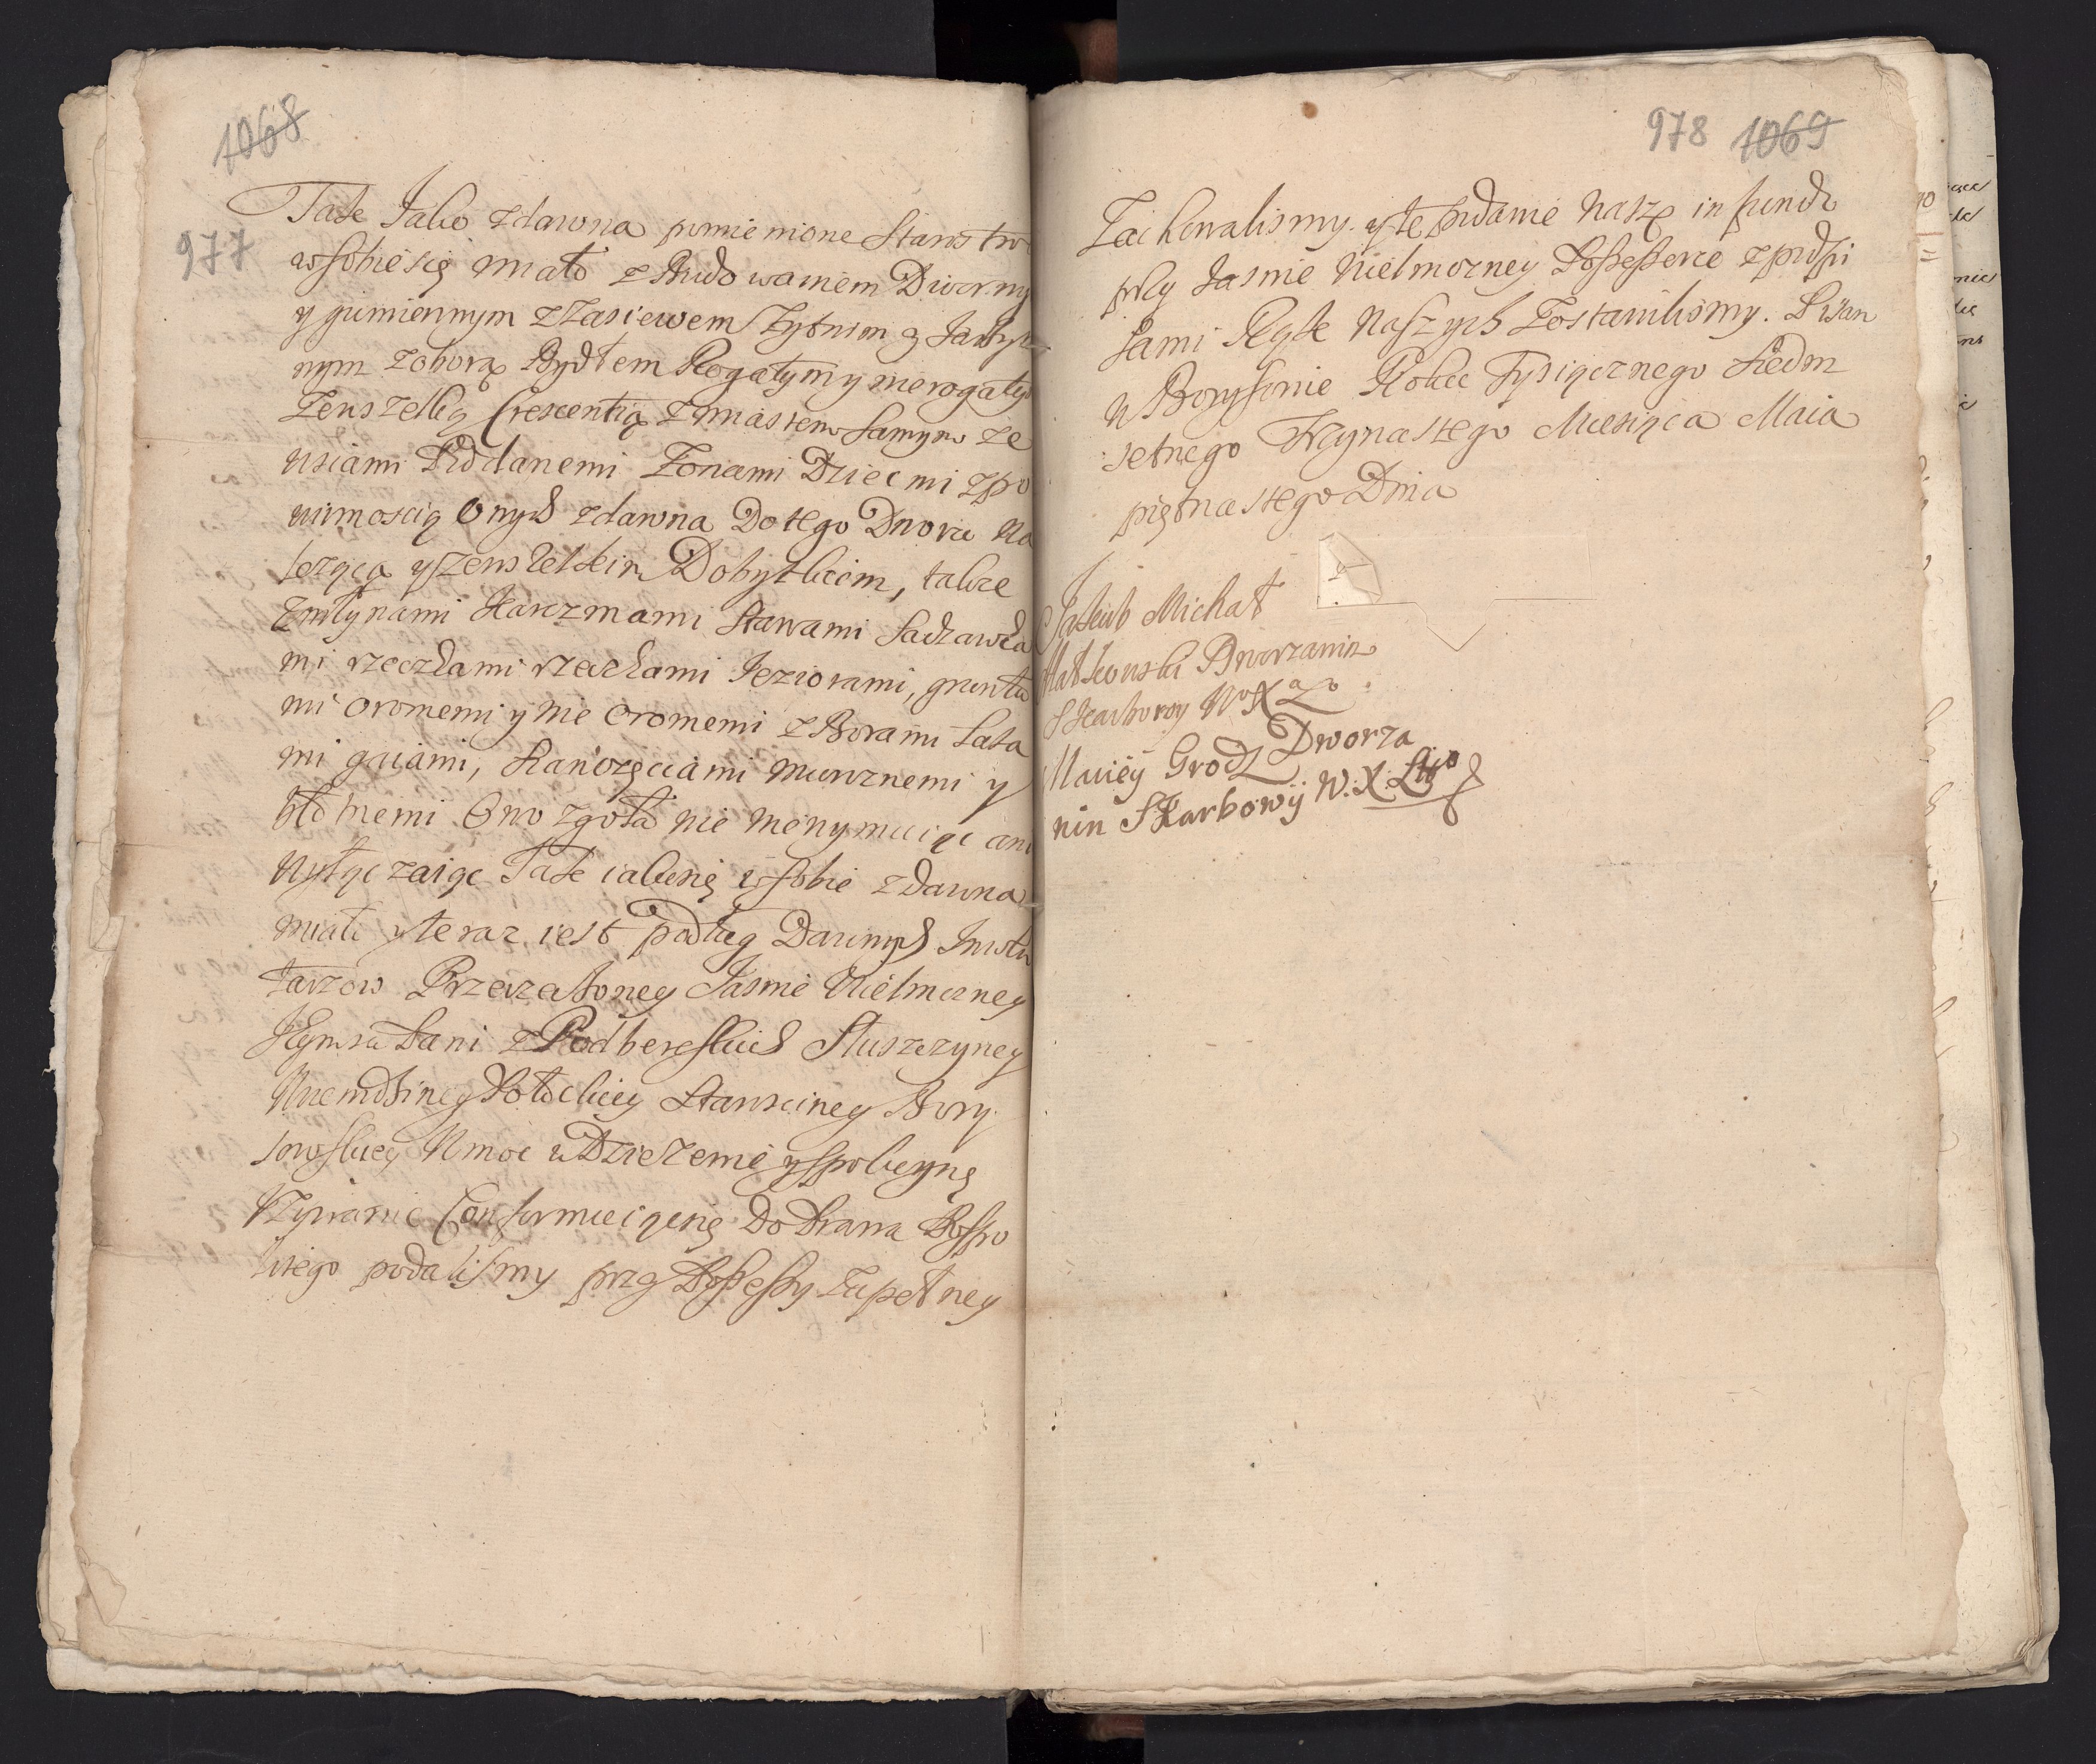 1068
977
Tak Jako zdawna pomienione Starostwo
wsobie się miało z Budowaniem Dwornym
y gumiennym z Zasiewem Żytnim y Jarzyn
nym z oborą Bydłem Rogatym y nierogatym
Zewszelką Crescentią z miastem Samym ze
wsiami Poddanemi Zonami Dziecmi z po
winnoscią onych zdawna Do tego Dworu na
lezącą y zewszelkim Dobytkiem, takze
z młynami Karczmami Stawami Sadzawka
mi rzeczkami rzekami Jeziorami, grunta
mi oromemi y nie oromemi z Borami Lasa
mi gaiami, Sianozęciami murożnemi y
błotnemi Owo zgoła nie meny muiąc ani
wyłączaiąc Tak iakosię wsobie zdawna
miało y teraz iest podług Dawnych Inwen
tarzow Przerzeczoney Jasnie Wielmozney
JeyMsci Pani z Podbereskich Słuszczyney
Woiewodziney Połockiey Starosciney Bory
sowskiey W moc w Dzierzenie y spokoyne
Vzywanie Conformuiącsię Do Prawa Pospo
litego podalismy przy Possessyi zupełney
978 1069
Zachowalismy. y te podanie Nasze in fundo
przy Jasnie Wielmozney Possessorce z podpi
sami Rąk Naszych Zostawilismy. Pisan
w Borysowie Roku Tysiącznego Siedm
setnego Trzynastego Miesiąca Maia
piętnastego Dnia
Jakub Michał
Małkowski Dworzanin
Skarbowy W° X° L°
Maciey Grodz Dworza
nin Skarbowÿ W. X. Litgo